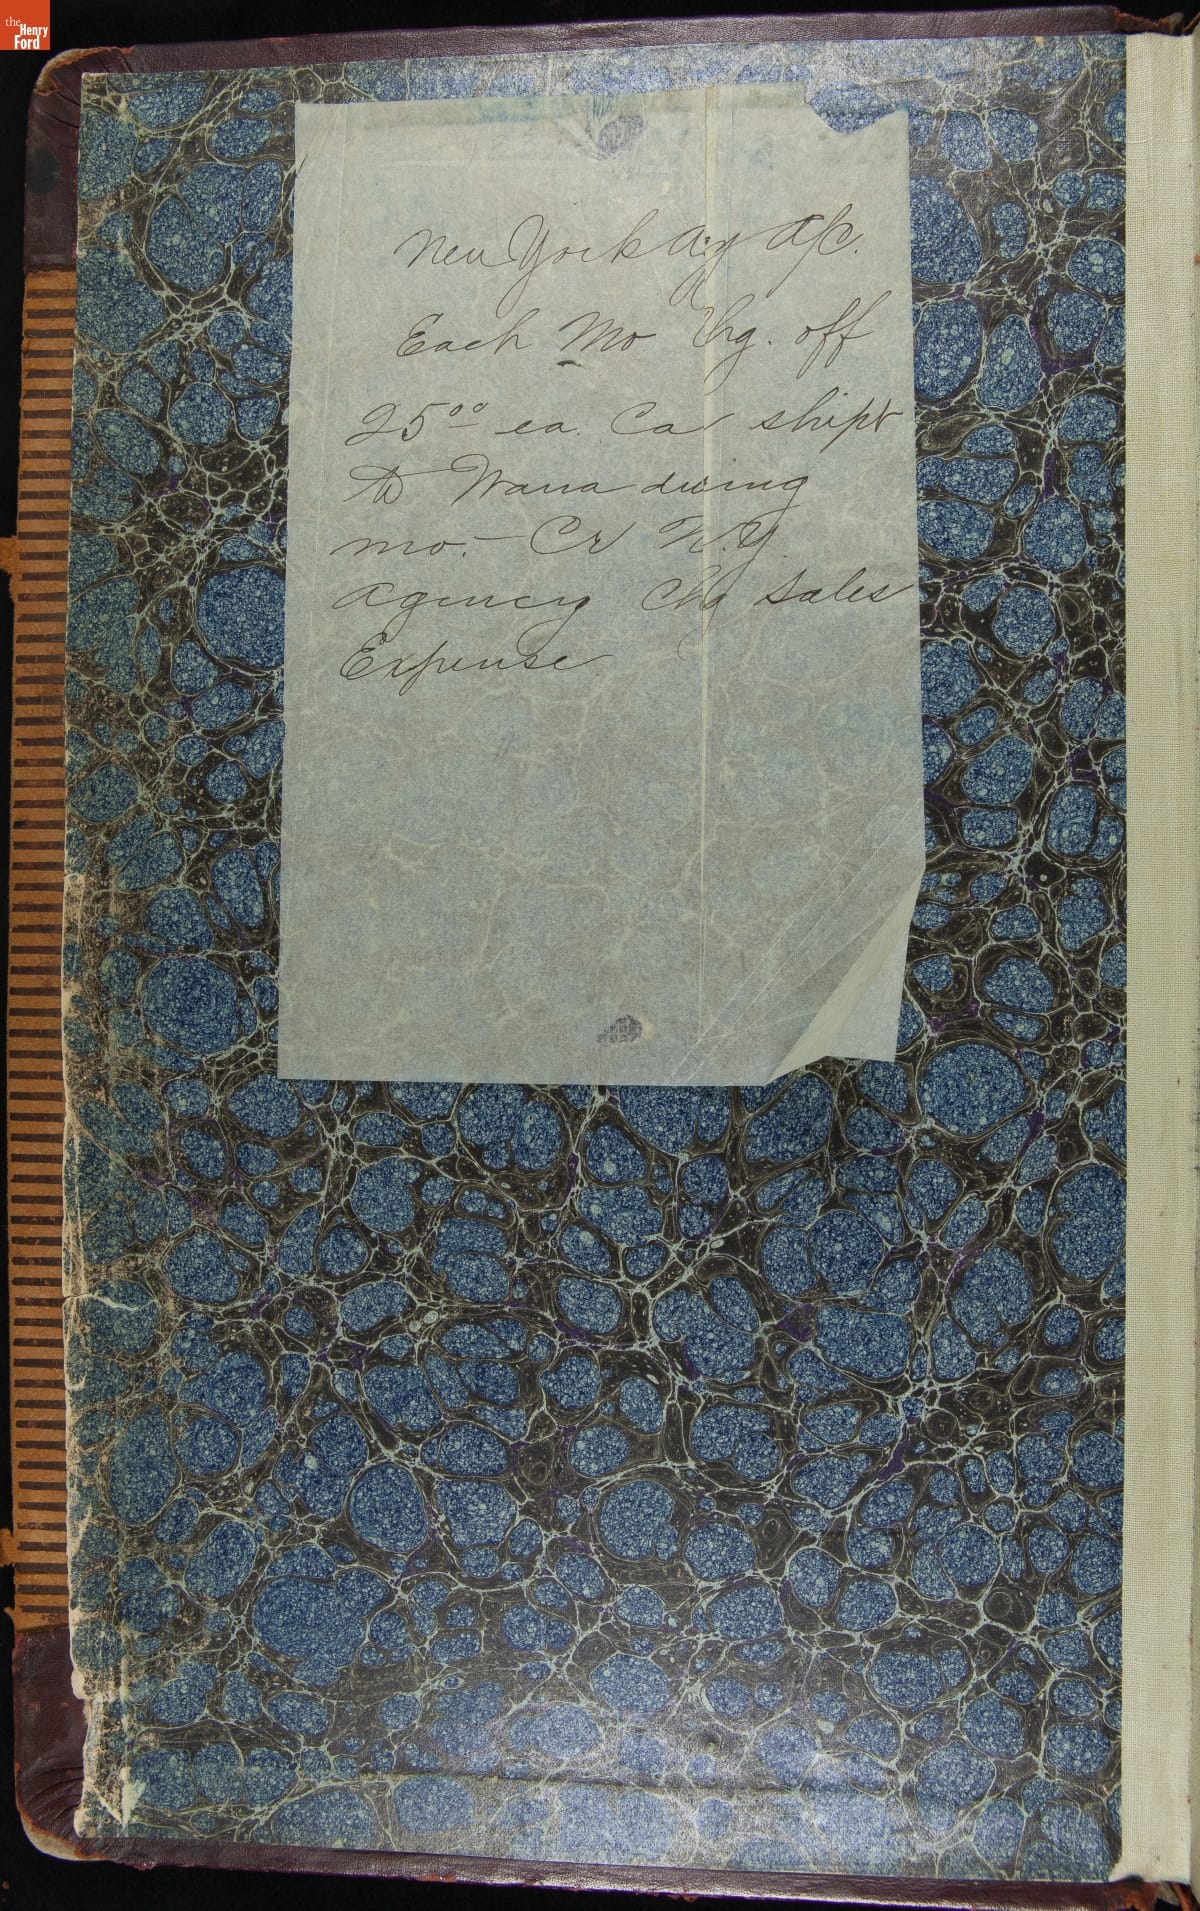 the
Henry
Ford
New York Agy a/c.
Each Mo. Chg. off
25⁰⁰ ea. Car shipt
to Wana during
mo. – Cr N.Y.
Agency Chg Sales
Expense